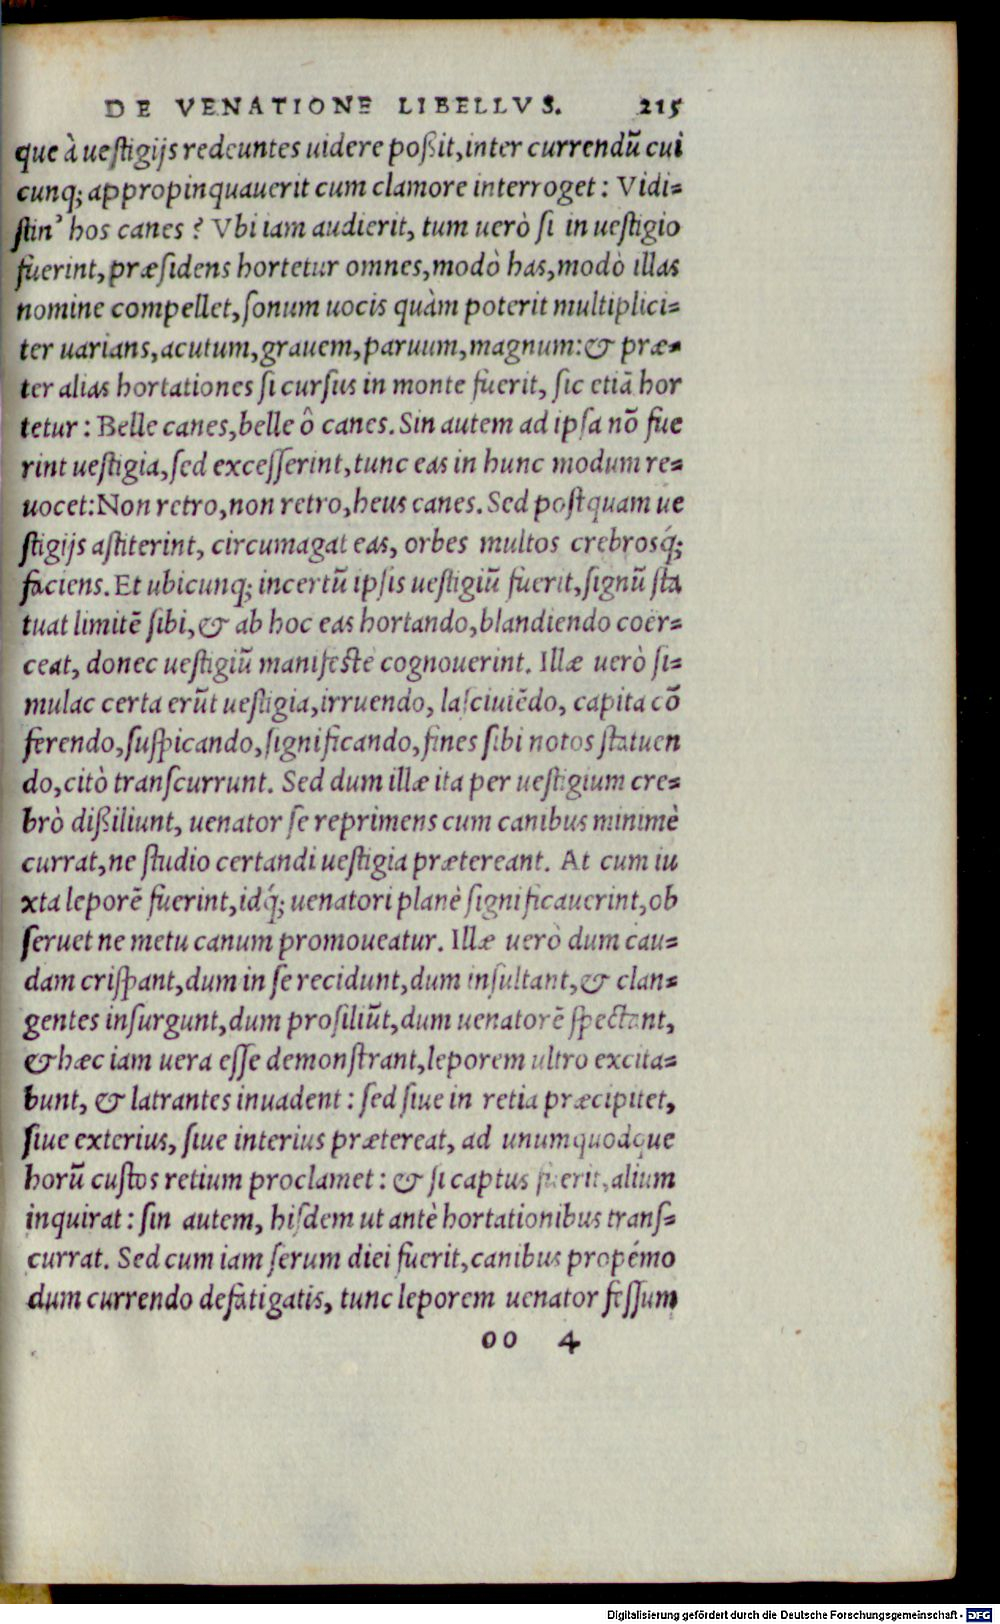 DE VENATIONE LIBELLVS. 215
que à ueſtigijs redeuntes uidere poßit, inter currendũ cui
cunq; appropinquauerit cum clamore interroget: Vidi-
ſtin’ hos canes? Vbi iam audierit, tum uerò ſi in ueſtigio
fuerint, præſidens hortetur omnes, modò has, modò illas
nomine compellet, ſonum uocis quàm poterit multiplici-
ter uarians, acutum, grauem, paruum, magnum: & præ-
ter alias hortationes ſi curſus in monte fuerit, ſic etiã hor
tetur: Belle canes, belle ô canes. Sin autem ad ipſa nõ fue
rint ueſtigia, ſed exceſſerint, tunc eas in hunc modum re-
uocet: Non retro, non retro, heus canes. Sed poſtquam ue
ſtigijs aſtiterint, circumagat eas, orbes multos crebrosq́;
faciens. Et ubicunq; incertũ ipſis ueſtigiũ fuerit, ſignũ ſta
tuat limitẽ ſibi, & ab hoc eas hortando, blandiendo coër-
ceat, donec ueſtigiũ manifeſtè cognouerint. Illæ uerò ſi-
mulac certa erũt ueſtigia, irruendo, laſciuiẽdo, capita cõ
ferendo, ſuſpicando, ſignificando, fines ſibi notos ſtatuen
do, citò tranſcurrunt. Sed dum illæ ita per ueſtigium cre-
brò dißiliunt, uenator ſe reprimens cum canibus minimè
currat, ne ſtudio certandi ueſtigia prætereant. At cum iu
xta leporẽ fuerint, idq́; uenatori planè ſignificauerint, ob
ſeruet ne metu canum promoueatur. Illæ uerò dum cau-
dam criſpant, dum in ſe recidunt, dum inſultant, & clan-
gentes inſurgunt, dum proſiliũt, dum uenatorẽ ſpectant,
& hæc iam uera eſſe demonſtrant, leporem ultro excita-
bunt, & latrantes inuadent: ſed ſiue in retia præcipitet,
ſiue exterius, ſiue interius prætereat, ad unumquodque
horũ cuſtos retium proclamet: & ſi captus fuerit, alium
inquirat: ſin autem, hiſdem ut antè hortationibus tranſ-
currat. Sed cum iam ſerum diei fuerit, canibus propémo
dum currendo defatigatis, tunc leporem uenator feſſum
oo 4
Digitalisierung gefördert durch die Deutsche Forschungsgemeinschaft - DFG